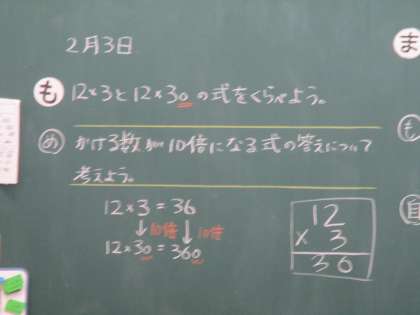 2月3日
も 12×3と12×30の式をくらべよう。
め かける数が10倍になる式の答えについて
考えよう。
12×3=36
↓10倍 ↓10倍
12×30=360
12
× 3
36
ま
も
自